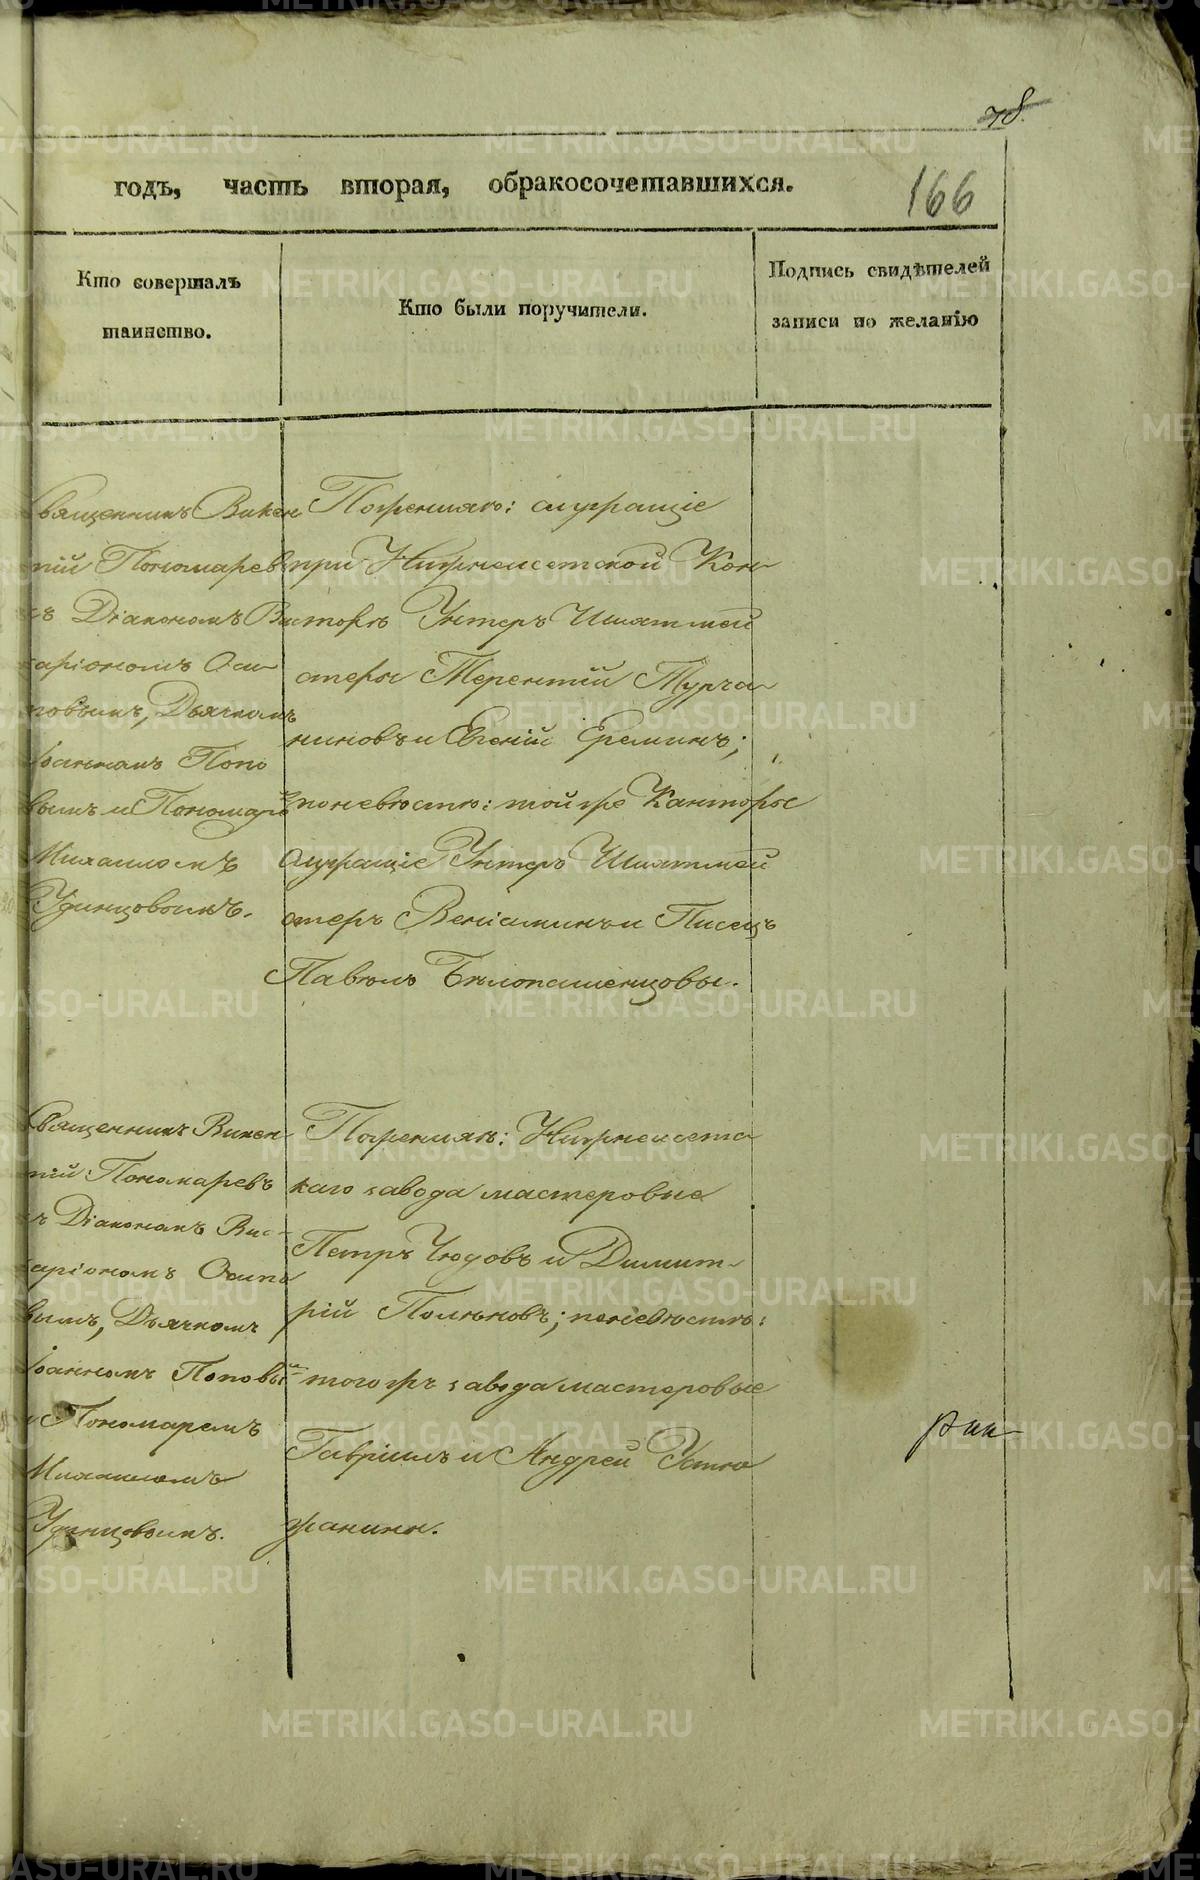 78.
годъ, часть вторая, обракосочетавшихся.
166
Кто совершалъ
таинство.
Кто были поручители.
Подпись свидѣтелей
записи по желанію
Священникъ Викен
тій Пономаревъ
съ Діакономъ Вис
саріономъ Оси
повымъ, Дьячкомъ
Іоанномъ Попо
вымъ и Пономаре
Михаиломъ
Удинцовымъ.
Поженихѣ: служащіе
при Нижнеисетской Кон
торѣ Унтеръ Шихтмей
стеры Терентій Турча
ниновъ и Евгеній Ереминъ;
поневѣстѣ: тойже Канторы
Служащіе Унтеръ Шихтмей
стеръ Веніаминъ и Писецъ
Павелъ Бѣлопашенцовы.
Священникъ Викен
тій Пономаревъ
съ Діакономъ Вис
саріономъ Осипо
вымъ, Дьячкомъ
Іоанномъ Поповы
и Пономаремъ
Михаиломъ
Удинцовымъ.
Поженихѣ: Нижнеисетс
каго завода мастеровые
Петръ Чюдовъ и Димит
рій Полѣновъ; поневѣстѣ:
тогожъ завода мастеровые
Гавріилъ и Андрей Устю
жанины.
METRIKI.GASO-URAL.RU